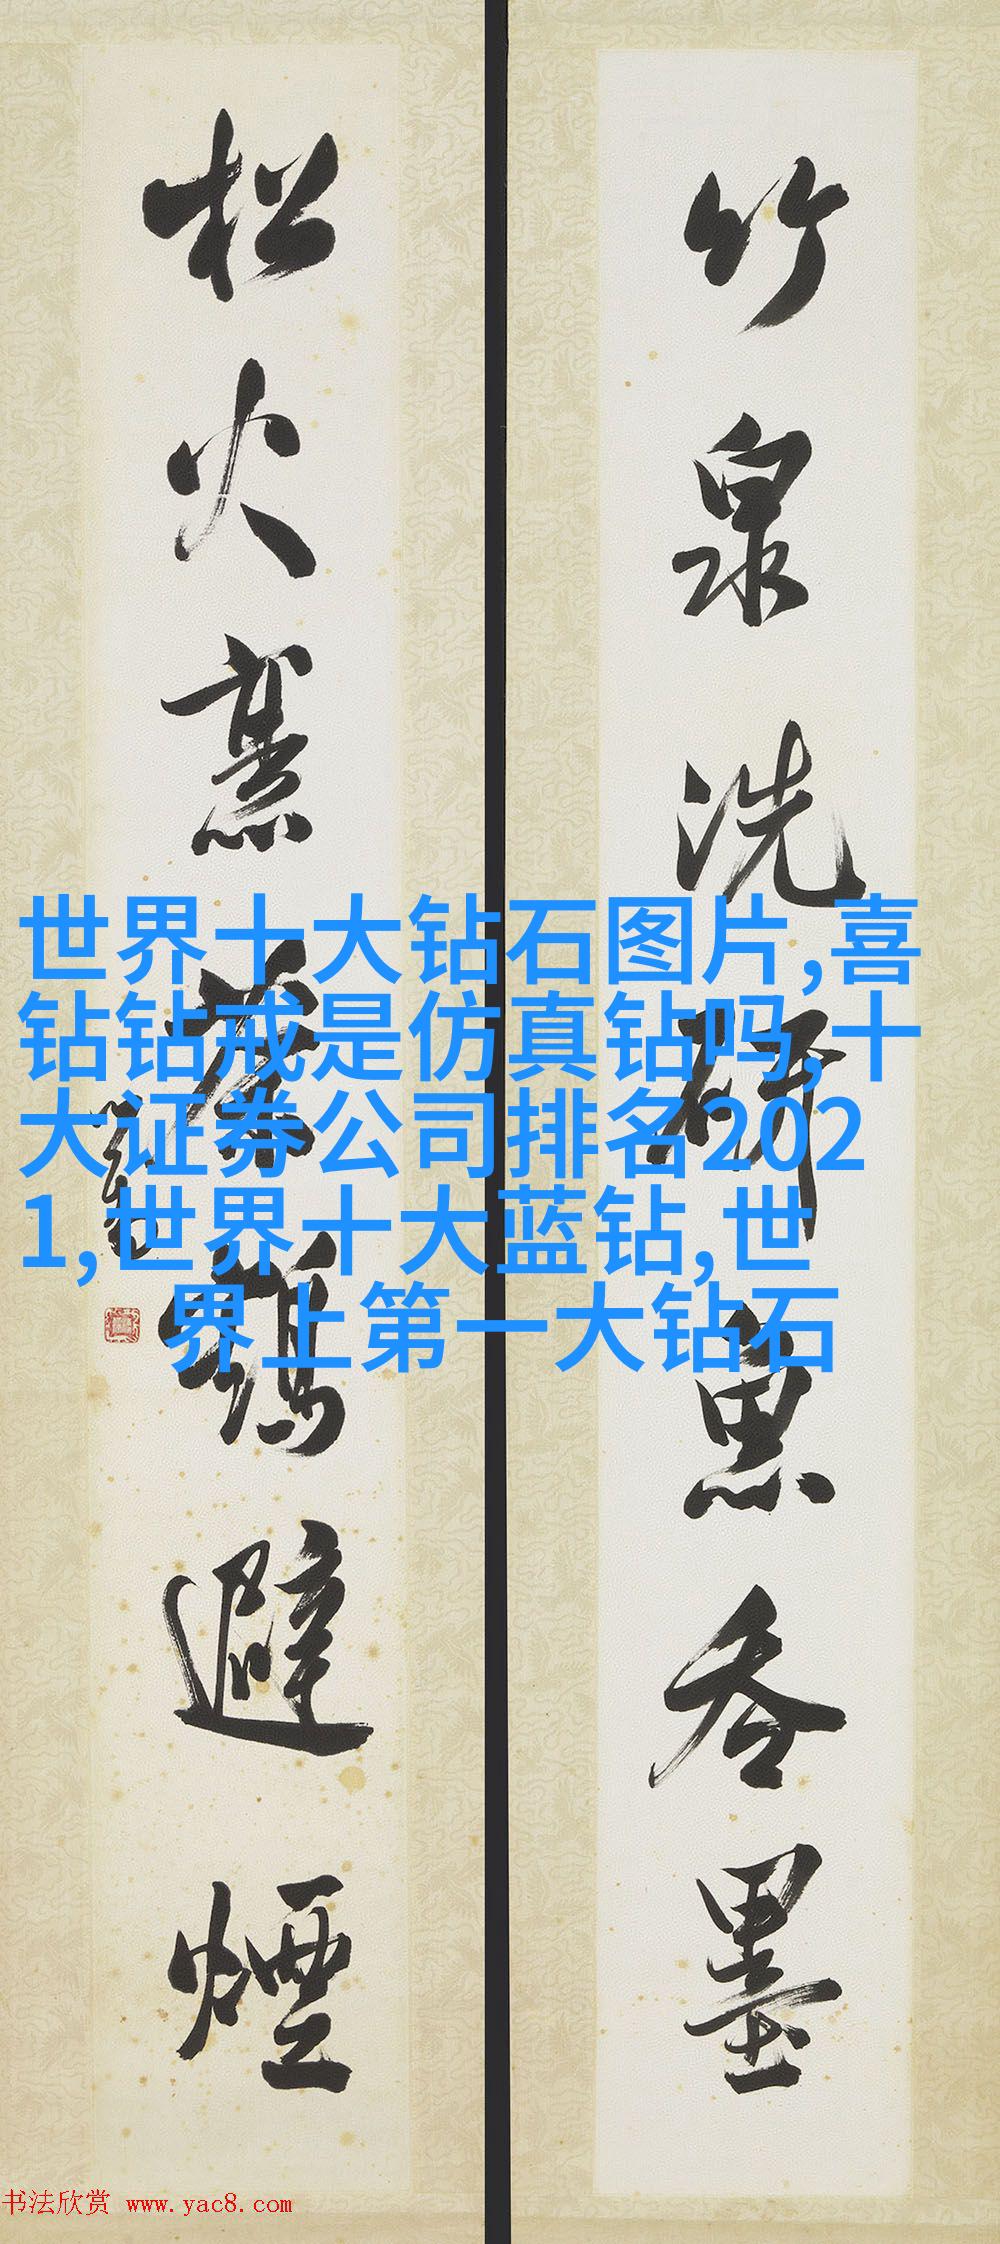 竹泉洗研魚吞墨
松火烹茶鶴避煙
世界十大钻石图片,喜
钻钻戒是仿真钻吗,十
大证券公司排名202
1,世界十大蓝钻,世
界上第一大钻石
书法欣赏 www.yac8.com